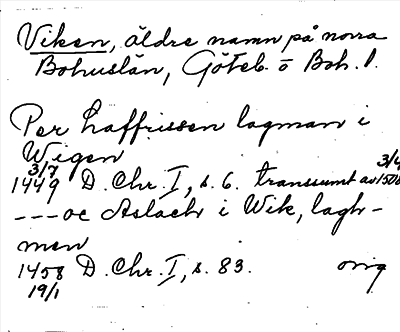 Viken, äldre namn på norra
Bohuslän, Göteb. o Boh. l.
Per Laffrissen lagman i
Wigen
3/7 3/4
1449 D. Chr. I, s. 6. transsumt av 1508
---oc Aslach i Wik, lagh-
men
1458 D. Chr. I, s. 83. orig
19/1